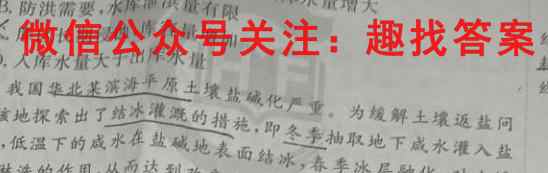 B.防洪需要,水库泄洪量有限
水量增大
微信公众号关注:趣找答案
D.入库水量大于出库水量
我国华北某滨海平原土壤盐碱化严重。为缓解土壤返盐问
该地探索出了结冰灌溉的措施,即冬季抽取地下咸水灌入盐
,低温下的咸水在盐碱地表面结冰,春季冰层融化
淋洗的作用,从而达到